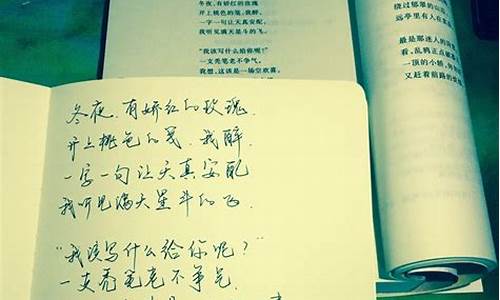 冬夜，有娇红的玫瑰
开上桃色的笺，我醉，
一字一句让天真安配，
我听见满天星斗的飞。
“我该写什么给你呢？”
一支秃笔老不争气，
我想，这该是一场空欢喜。
绕过郁翠的山
远亭里有人在
最是那迷人的
看，乱鸦正点破
一顶的小轿，
又赶着前路的
冬夜.有娇红的玫瑰.
开上桃色的笺.我醉.
一字一句让天真安配
我听见满天星斗的飞.
“我该写什么给你呢？”
一支秃笔老不争气.